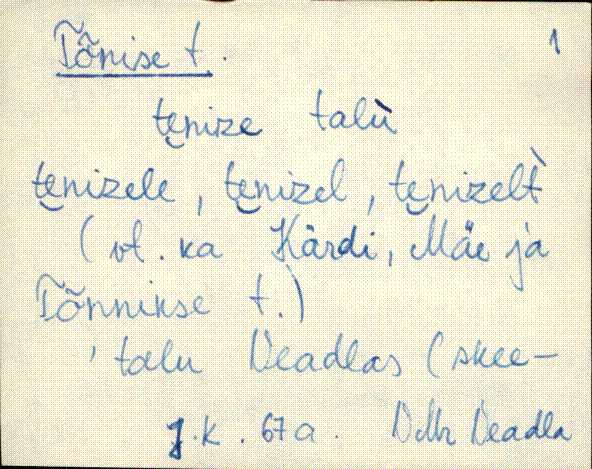 Tõnise t. 1
te̮nize talù
te̮nizele, te̮nizel, te̮nizelt̀
(vt. ka Kärdi, Mäe ja
Tõnnikse t.)
' talu Veadlas (skee-
J.K. 67 a. Veadla